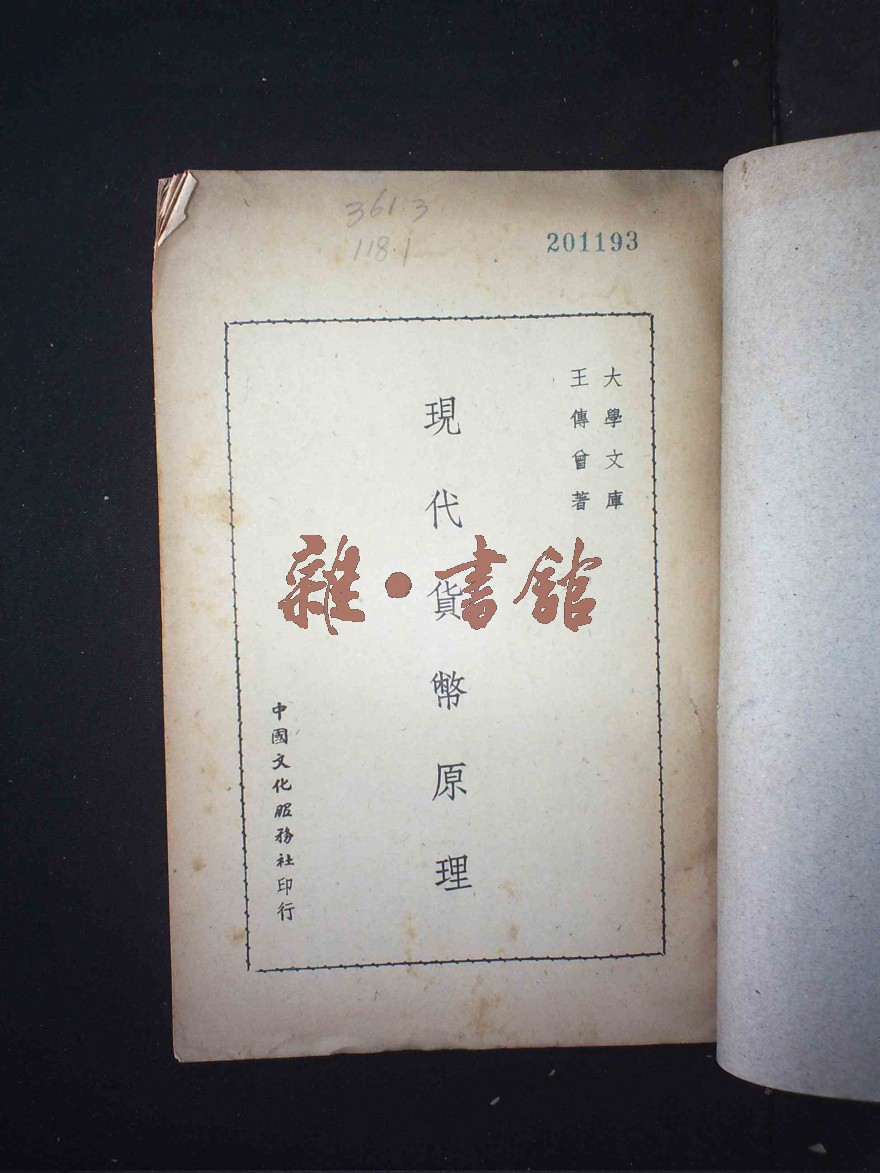 361.3
118.1
201193
大學文庫
王傳曾著
現代貨幣原理
雜·書館
中國文化服務社印行